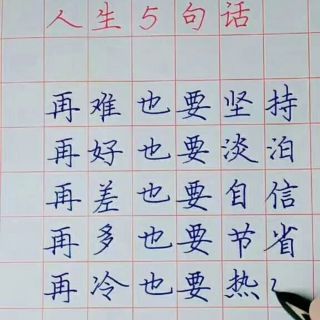 人生5句话
再难也要坚持
再好也要淡泊
再差也要自信
再多也要节省
再冷也要热